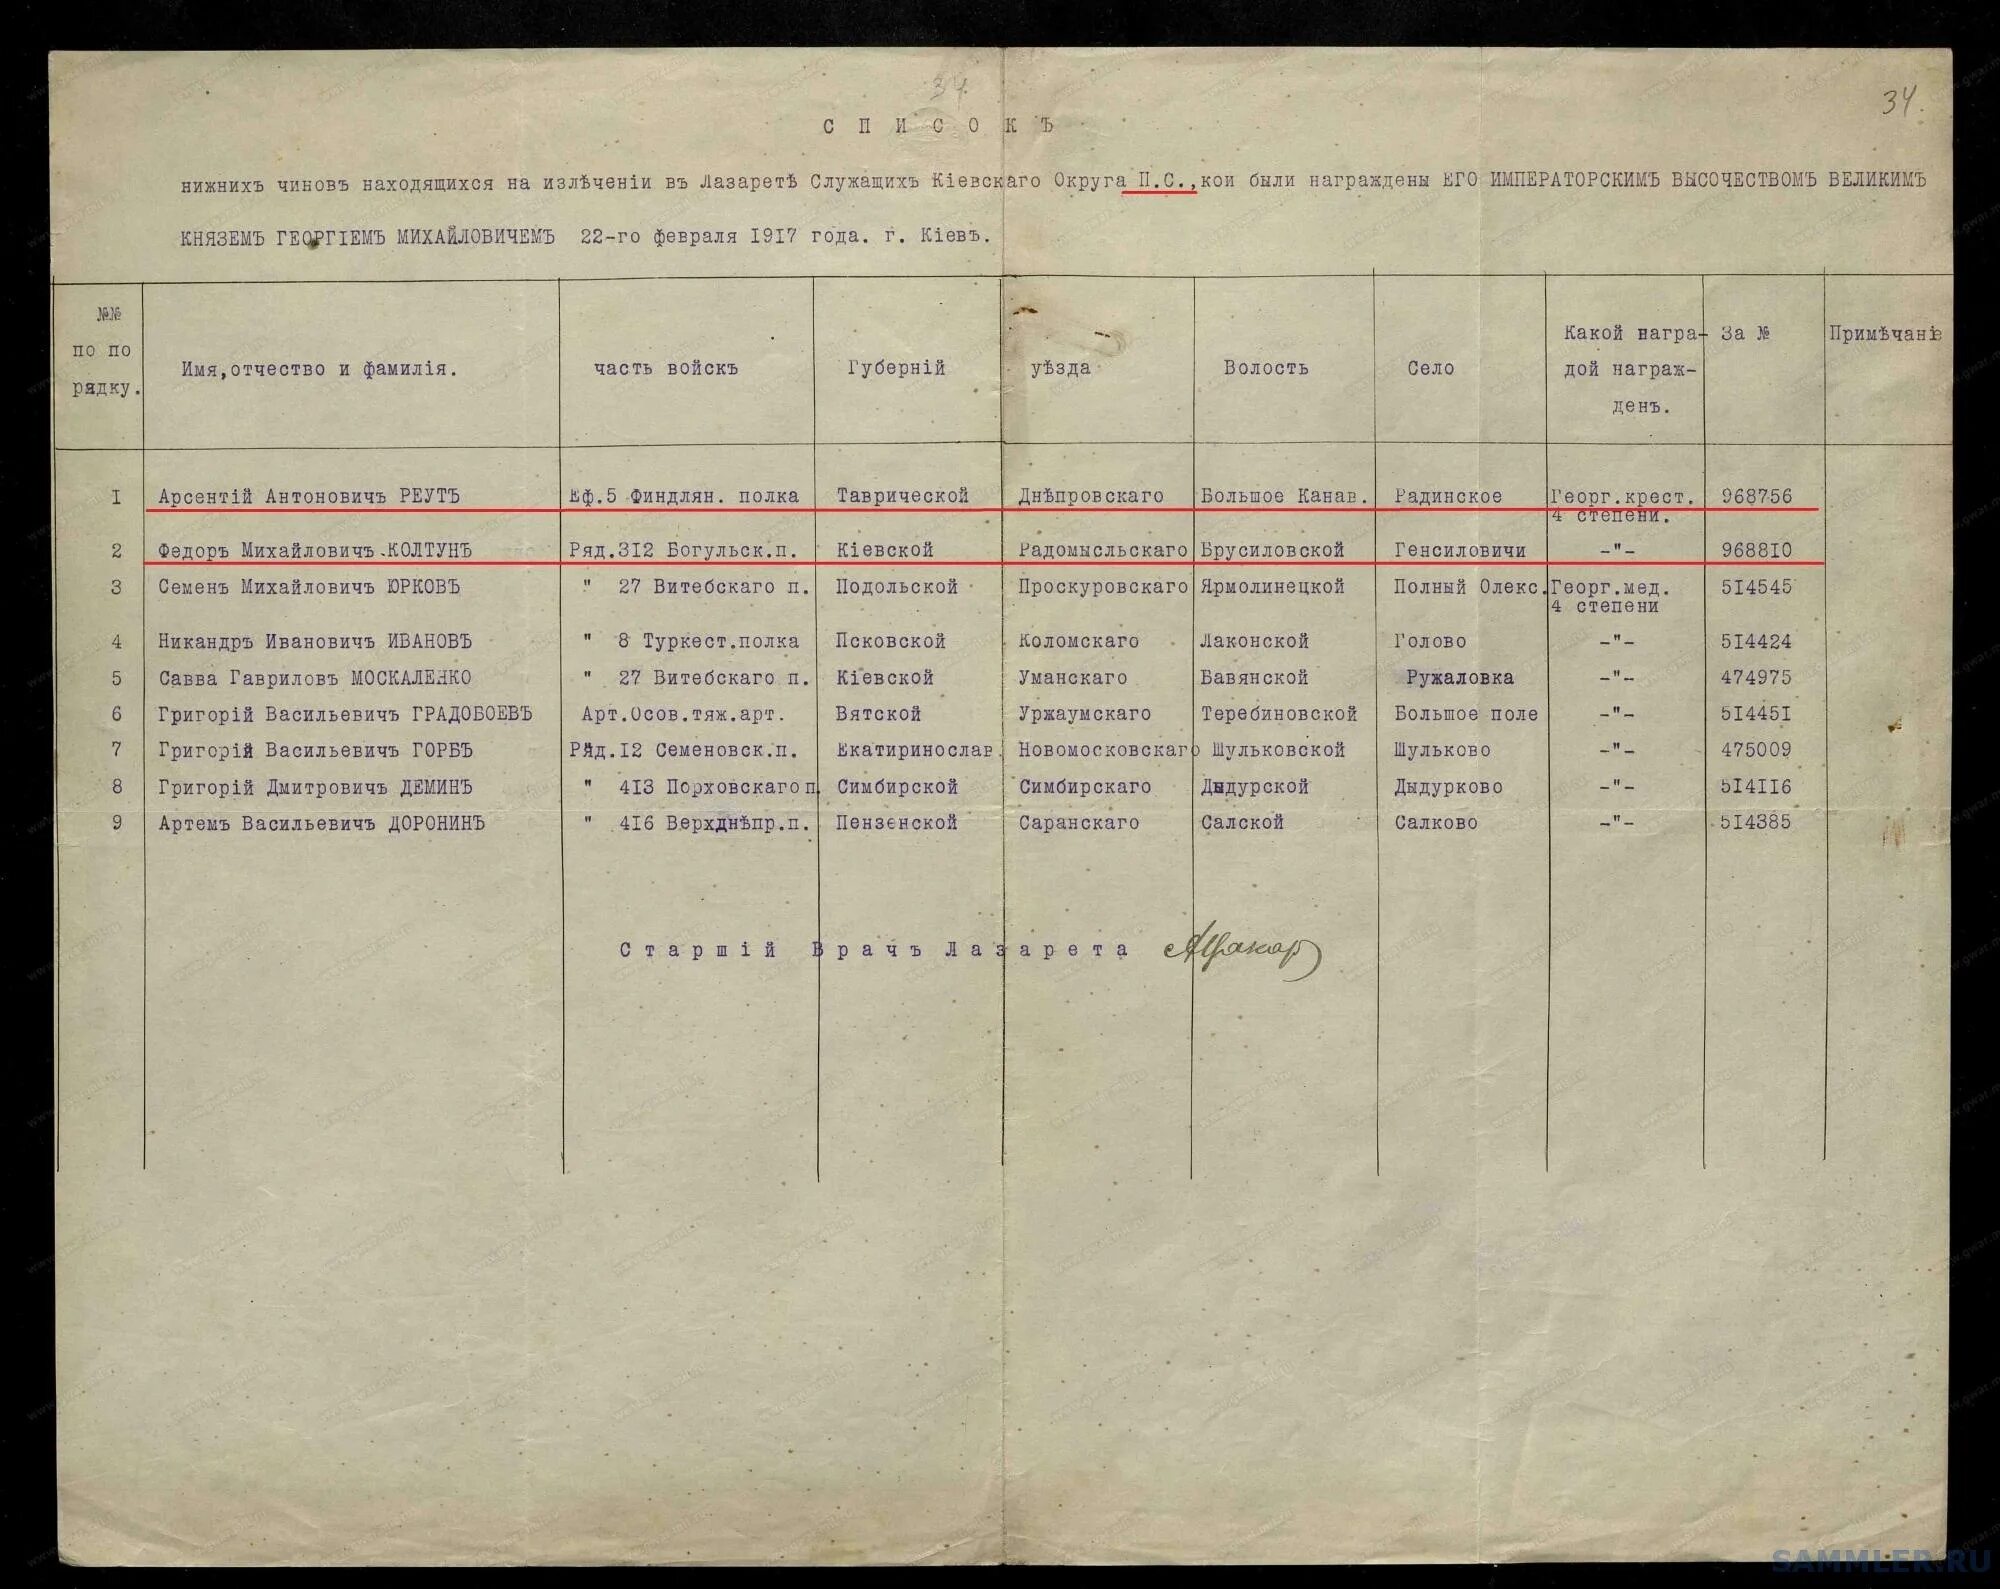 34.
34.
С П И С О К Ъ
нижнихъ чиновъ находящихся на излѣченіи въ Лазаретѣ Служащихъ Кіевскаго Округа П.С.,кои были награждены ЕГО ИМПЕРАТОРСКИМЪ ВЫСОЧЕСТВОМЪ ВЕЛИКИМЪ
КНЯЗЕМЪ ГЕОРГІЕМЪ МИХАЙЛОВИЧЕМЪ 22-го февраля 1917 года. г. Кіевъ.
№№ по по рядку. Имя,отчество и фамилія. часть войскъ Губерній уѣзда Волость Село Какой награ- дой награж- денъ. За № Примѣчаніе
I Арсентій Антоновичъ РЕУТЪ Еф.5 Финдлян. полка Таврической Днѣпровскаго Большое Канав. Радинское Георг.крест. 968756
4 степени.
2 Федоръ Михайловичъ КОЛТУНЪ Ряд.312 Богульск.п. Кіевской Радомысльскаго Брусиловской Генсиловичи -"- 968810
3 Семенъ Михайловичъ ЮРКОВЪ " 27 Витебскаго п. Подольской Проскуровскаго Ярмолинецкой Полный Олекс. Георг.мед. 514545
4 степени
4 Никандръ Ивановичъ ИВАНОВЪ " 8 Туркест.полка Псковской Коломскаго Лаконской Голово -"- 514424
5 Савва Гавриловъ МОСКАЛЕНКО " 27 Витебскаго п. Кіевской Уманскаго Бавянской Ружаловка -"- 474975
6 Григорій Васильевичъ ГРАДОБОЕВЪ Арт.Осов.тяж.арт. Вятской Уржаумскаго Теребиновской Большое поле -"- 514451
7 Григорій Васильевичъ ГОРБЪ Ряд.12 Семеновск.п. Екатиринослав. Новомосковскаго Шульковской Шульково -"- 475009
8 Григорій Дмитровичъ ДЕМИНЪ " 413 Порховскаго п. Симбирской Симбирскаго Дыдурской Дыдурково -"- 514116
9 Артемъ Васильевичъ ДОРОНИНЪ " 416 Верхднѣпр.п. Пензенской Саранскаго Салской Салково -"- 514385
Старшій Врачъ Лазарета
SAMMLER.RU